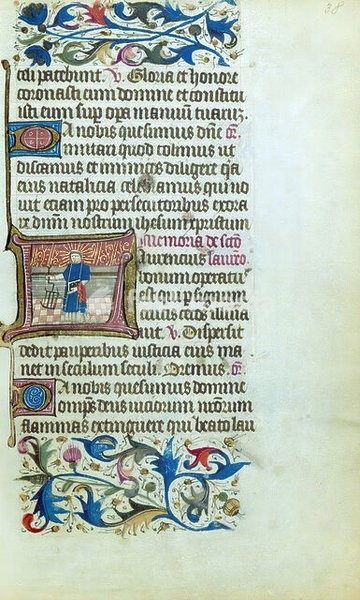 38
celi patebunt. V. Gloria et honore
coronasti eum domine et constitu
isti eum sup opa manuum tuarum.
Da nobis quesumus dne or.
imitari quod colimus ut
discamus et inimicos diligere qa
eius natalicia celebramus qui no
uit etiam pro persecutoribus exora
re dnm nostrum ihesum xpristum
Memoria de scto
laurencius laurecio
bonum operatus
est qui p signum
crucis cecos illumi
nauit. V. Dispersit
dedit pauperibus iusticia eius ma
net in seculum seculi. Oremus. or.
Da nobis quesumus domine
omps deus uiciorum nrorum
flammas extinguere qui beato lau